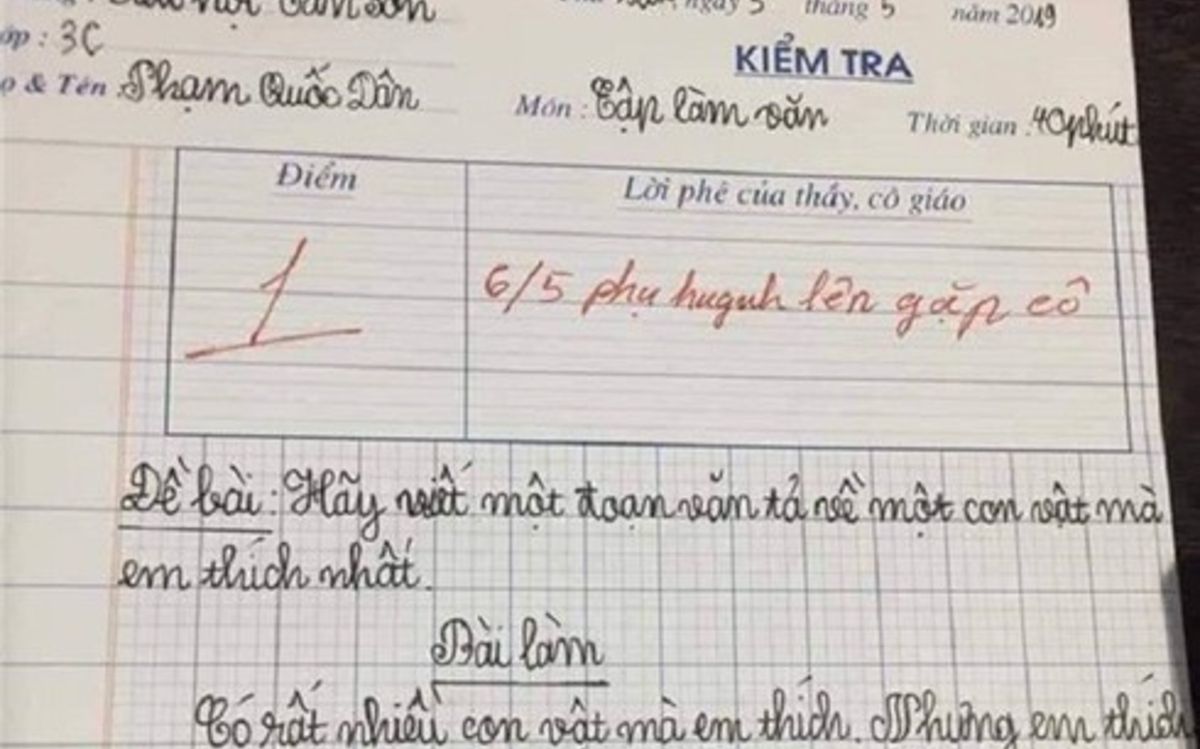 ngày 3 tháng 5 năm 2019
3C
KIỂM TRA
& Tên : Phạm Quốc Dân
Môn : Tập làm văn
Thời gian : 40 phút
Điểm
Lời phê của thầy, cô giáo
1
6/5 phụ huynh lên gặp cô
Đề bài : Hãy viết một đoạn văn tả về một con vật mà
em thích nhất.
Bài làm
Có rất nhiều con vật mà em thích. Nhưng em thích